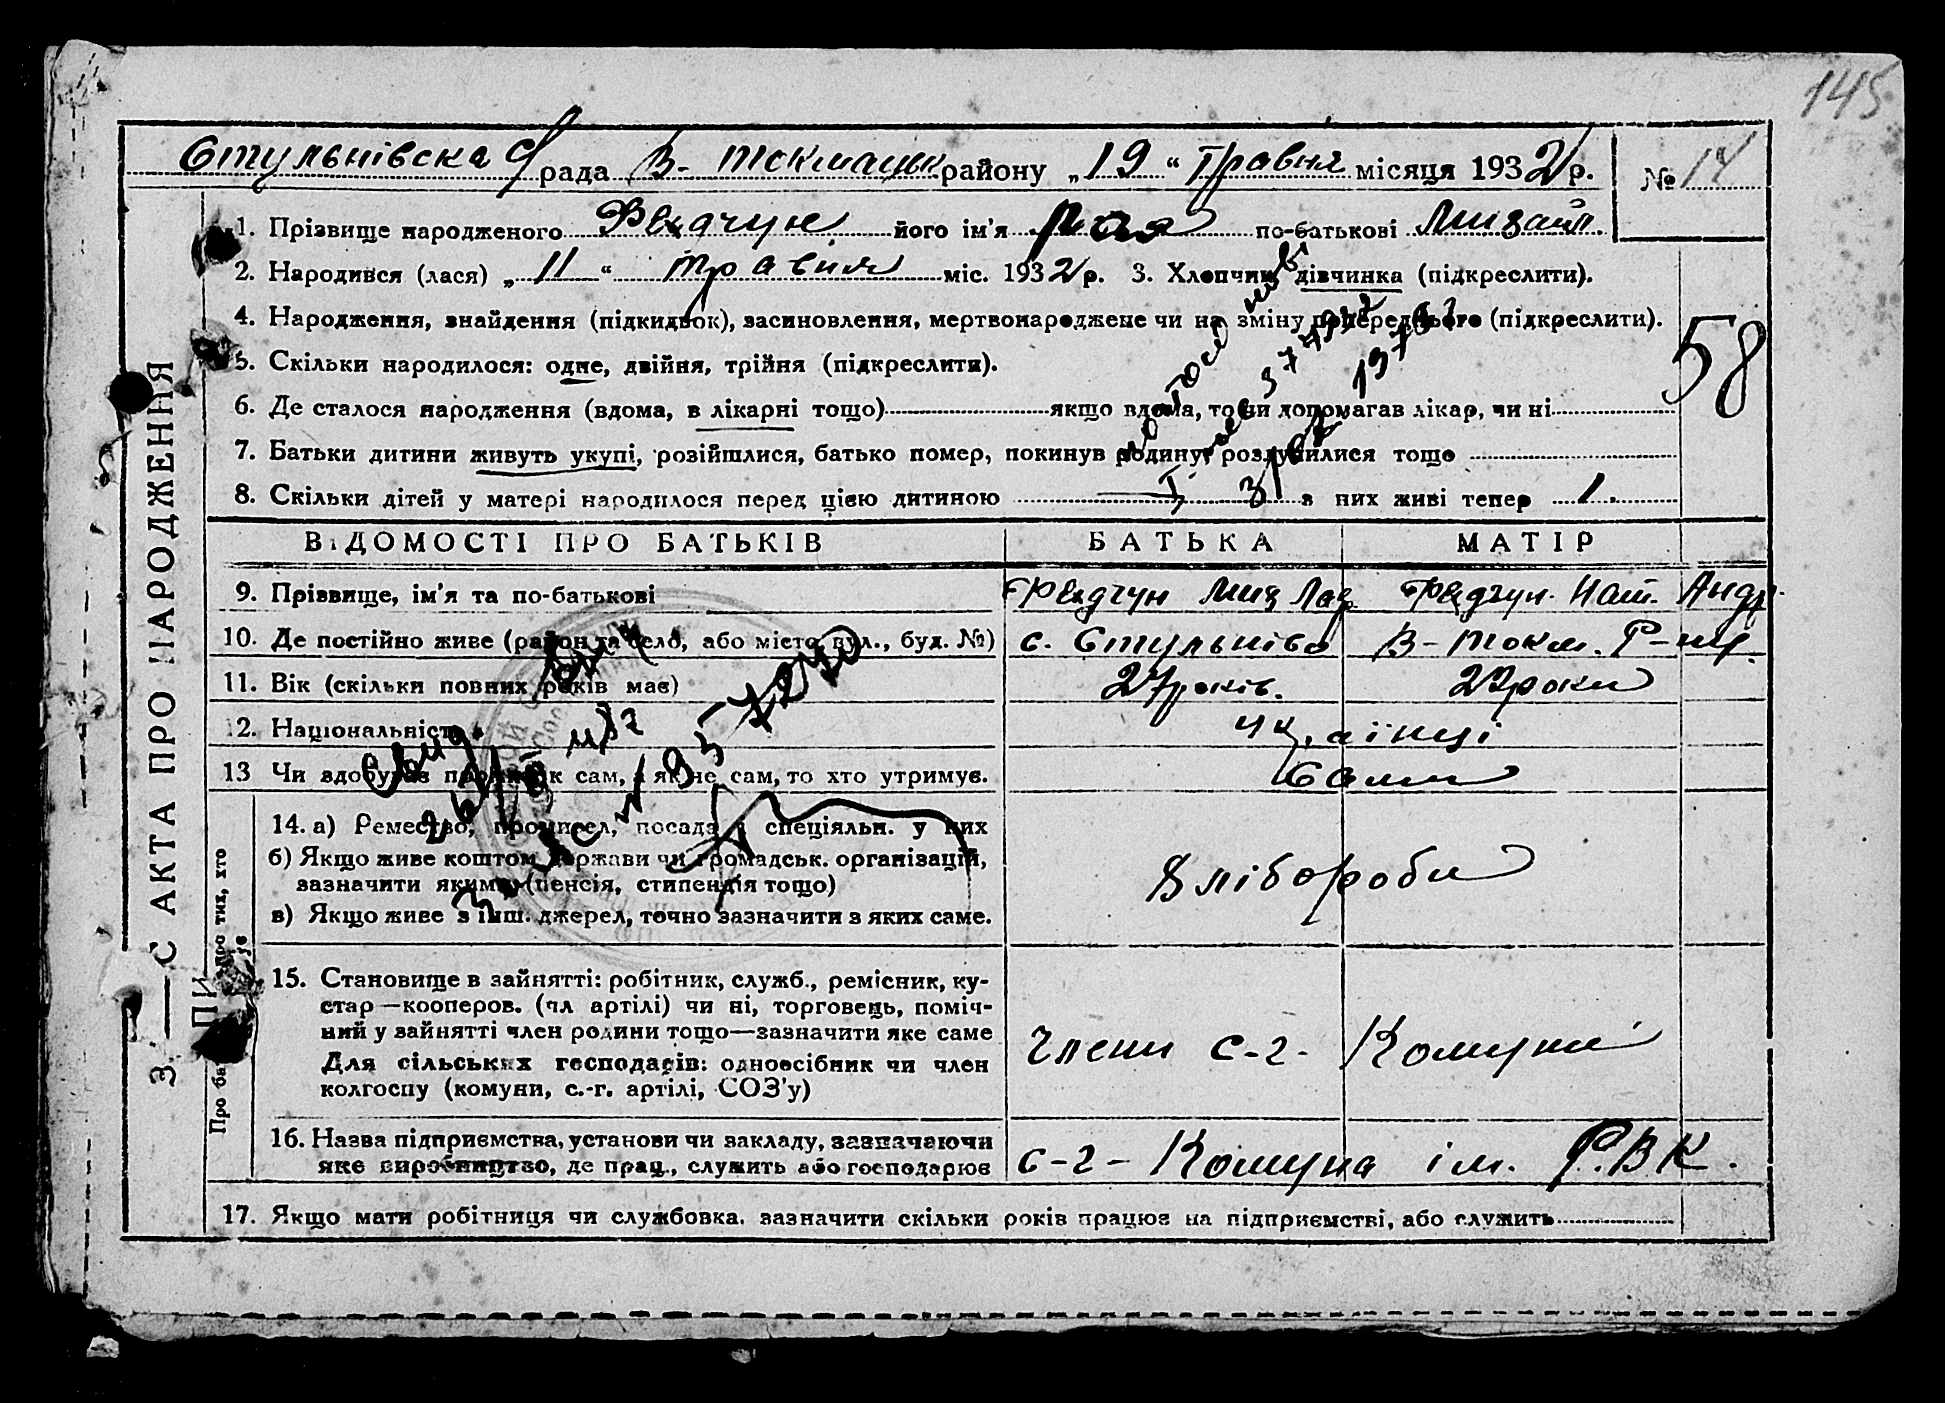 145
Стульнівска с/рада В-Токмацьк району „19“ Травня місяця 1932 р. № 14
1. Прізвище народженого Федчун його ім'я Рая по-батькові Михайл.
2. Народився (лася) „11“ травня міс. 1932 р. 3. Хлопчик, дівчинка (підкреслити).
4. Народження, знайдення (підкидьок), засиновлення, мертвонароджене чи на зміну попереднього (підкреслити).
58
5. Скільки народилося: одне, двійня, трійня (підкреслити).
6. Де сталося народження (вдома, в лікарні тощо) якщо вдома, то чи допомагав лікар, чи ні
7. Батьки дитини живуть укупі, розійшлися, батько помер, покинув родину, розлучилися тощо
8. Скільки дітей у матері народилося перед цією дитиною 1 з них живі тепер 1.
ВІДОМОСТІ ПРО БАТЬКІВ БАТЬКА МАТІР
9. Прізвище, ім'я та по-батькові Федчун Мих Федчун Нат. Андр.
10. Де постійно живе (район та село, або місто, вул., буд. №) с. Стульніво В-Токм. Р-ну.
11. Вік (скільки повних років має) 27 років. 22 роки
12. Національність українці
13 Чи здобуває прожиток сам, а як не сам, то хто утримує. сами
14. а) Ремество, промисел, посада й спеціяльн. у них
б) Якщо живе коштом держави чи громадськ. організацій,
зазначити якими (пенсія, стипендія тощо)
Хлібороби
в) Якщо живе з інш. джерел, точно зазначити з яких саме.
15. Становище в зайнятті: робітник, служб., ремісник, ку-
стар—кооперов. (чл артілі) чи ні, торговець, поміч-
ний у зайнятті член родини тощо—зазначити яке саме
Члени с-г- Комуни
Для сільських господарів: одноосібник чи член
колгоспу (комуни, с.-г. артілі, СОЗ'у)
16. Назва підприємства, установи чи закладу, зазначаючи
яке виробництво, де прац., служить або господарює с-г- Комуна ім. Р.В.К.
17. Якщо мати робітниця чи службовка, зазначити скільки років працює на підприємстві, або служить
З АКТА ПРО НАРОДЖЕННЯ